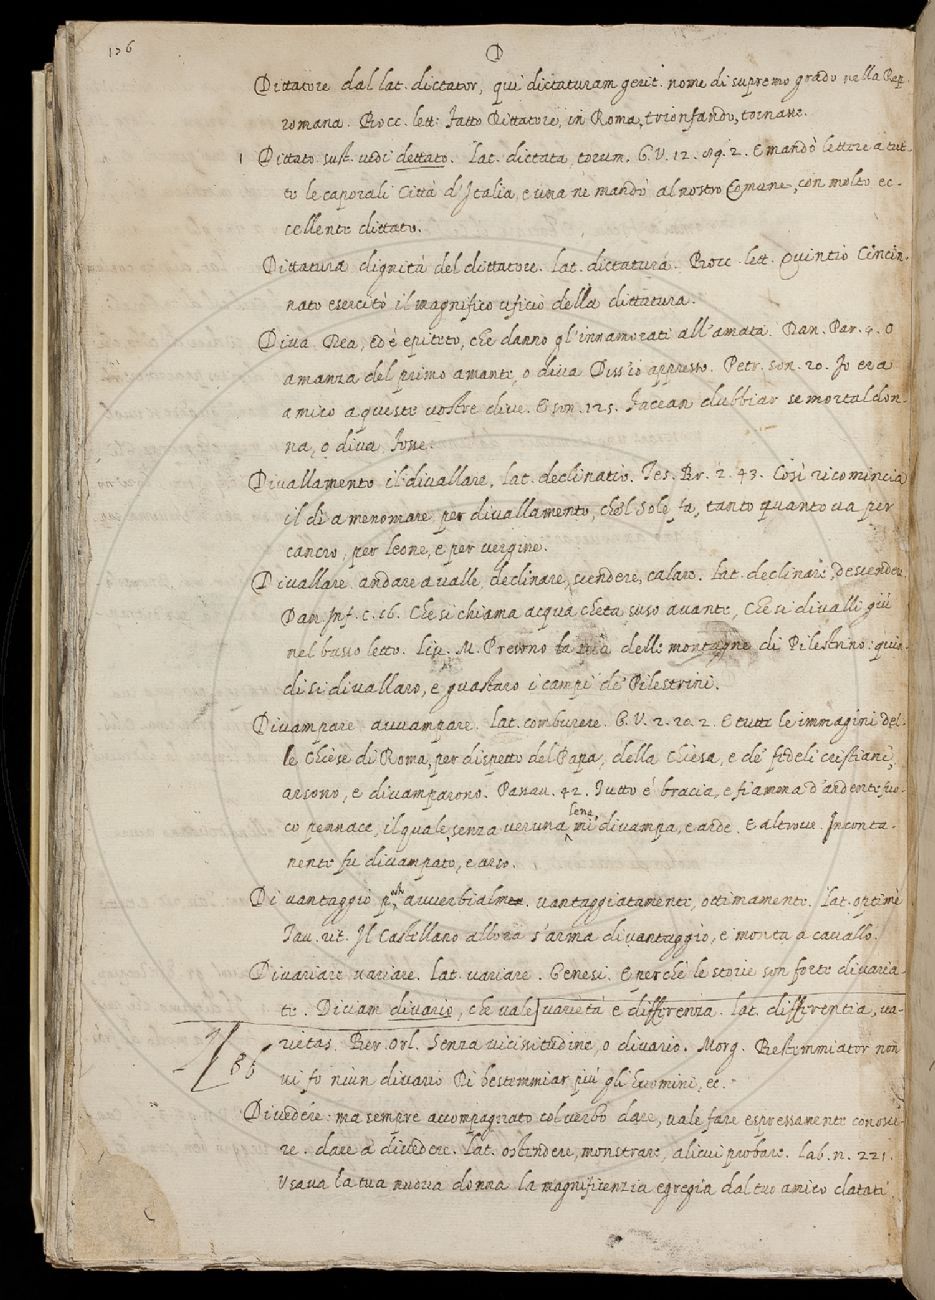 136
D
Dittatore dal lat. dictator, qui dictaturam gerit. nome di supremo grado nella Rep.
romana. Bocc. lett. Fatto Dittatore, in Roma, trionfando, tornasse.
1 Dittato sust. vedi dettato. lat. dictata, torum. G.V. 12. 89. 2. E mandò lettere a tut-
to le caporali Città d'Italia, e una ne mandò al nostro Comune, con molto ec-
cellente dittato.
Dittatura dignità del dittatore. lat. dictatura. Bocc. lett. Quintio Cincin-
nato esercitò il magnifico uficio della dittatura.
Diva. Dea, ed è epiteto, che danno gl'innamorati all'amata. Dan. Par. 4. O
amanza del primo amante, o diva Diss'io appresso. Petr. son. 20. Io era
amico a queste vostre dive. E son. 125. Facean dubbiar se mortal don-
na, o diva fosse.
Divallamento il divallare. lat. declinatio. Tes. Br. 2. 43. Così ricomincia
il dì a menomare per divallamento, che'l Sole fa, tanto quanto va per
cancro, per leone, e per vergine.
Divallare andare a valle, declinare, scendere, calare. lat. declinare, descendere.
Dan. Inf. c. 16. Che si chiama acqua cheta suso avante, Che si divalli giù
nel basso letto. Liv. M. Presono la via delle montagne di Pilestrino: quin-
di si divallaro, e guastaro i campi de' Pilestrini.
Divampare avvampare. lat. comburere. G.V. 2. 20. 2. E tutte le immagini del-
le Chiese di Roma, per dispetto del Papa, della Chiesa, e de' fedeli cristiani,
arsono, e divamparono. Panav. 42. Tutto è bracia, e fiamma d'ardente fuo-
co pennace, il quale, senza veruna lena, mi divampa, e arde. E altrove. Inconta-
nente fu divampato, e arso.
Di vantaggio posto avverbialmte. vantaggiatamente, ottimamente. lat. optime
Tav. rit. Il Castellano allora s'arma di vantaggio, e monta a cavallo.
Divariare variare. lat. variare. Genesi. E perchè le storie son forte divaria-
te. Diciam divario, che vale] varietà e differenza. lat. differentia, va-
rietas. Ber. Orl. Senza vicissitudine, o divario. Morg. Bestemmiator non
vi fo niun divario Di bestemmiar più gli huomini, ec.
86
Divedere: ma sempre accompagnato col verbo dare, vale fare espressamente conosce-
re. dare a divedere. lat. ostendere, monstrare, alicui probare. lab. n. 221.
Usava la tua nuova donna la magnificenzia egregia dal tuo amico datati,